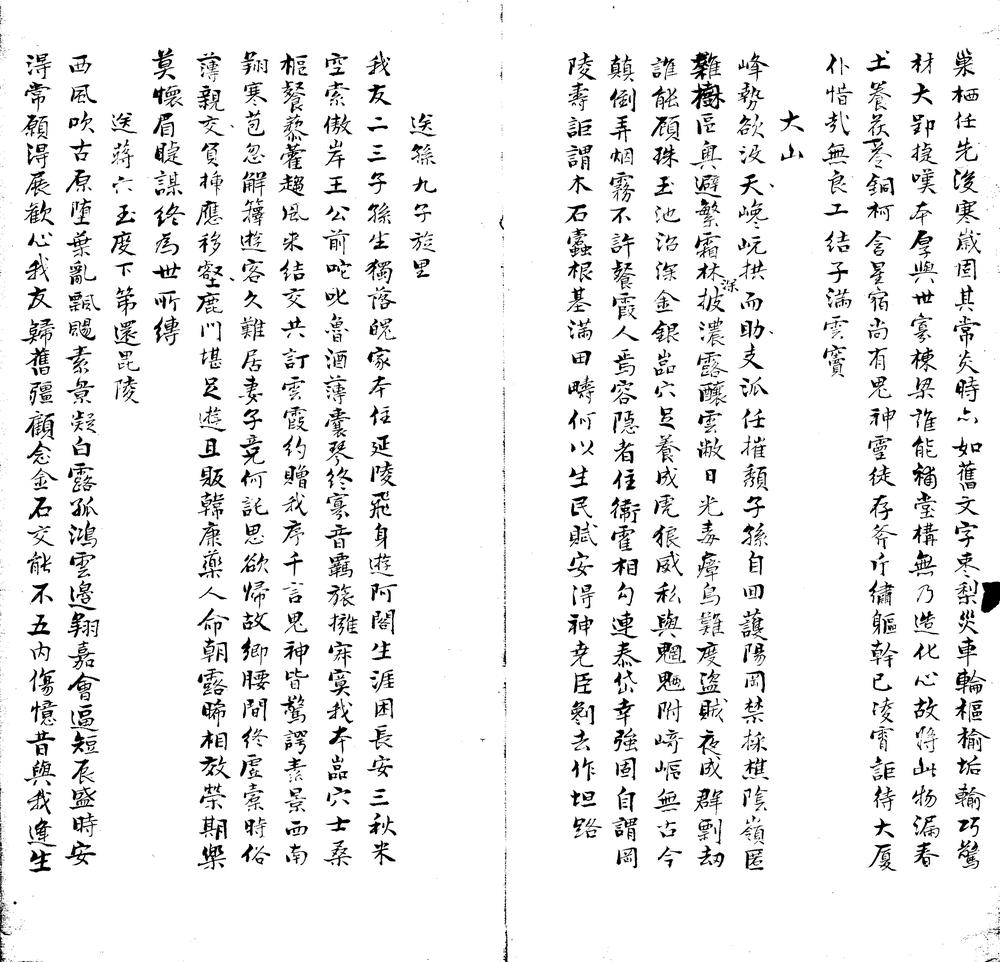 巢栖任先後寒歲固其常炎時亦如舊文字束梨災車輪樞榆垢輪巧驚
材大卽挺嘆本厚與世寡棟梁誰能補堂構無乃造化心故將此物漏春
土養茯苓銅柯含星宿尚有鬼神靈徒存斧斤繡軀幹已凌霄詎待大廈
仆惜哉無良工結子滿雲竇
大山
峰勢欲没天巉岏拱而助支派任摧頽子孫自回護陽岡禁採樵陰嶺匿
雜樹區奥避繁霜林深披濃露釀雲敝日光毒瘴鳥難度盜賊夜成群剽劫
誰能顧珠玉池沼深金銀嵓穴足養成虎狼威私與魍魎附崎嶇無古今
顛倒弄烟霧不許餐霞人焉容隱者住衞霍相勾連泰岱幸強固自謂岡
陵壽詎謂木石蠹根基滿田疇何以生民賦安得神堯臣剷去作坦路
送孫九子旋里
我友二三子孫生獨落魄家本住延陵飛身遊阿閣生涯困長安三秋米
空索傲岸王公前咤叱魯酒薄囊琴終寡音羈旅擁寂寞我本嵓穴士桑
樞餐藜藿趨風来結交共訂雲霞約贈我序千言鬼神皆驚諤素景西南
翔寒苞忽解籜遊客久難居妻子竟何託思欲帰故鄉腰間終虚橐時俗
薄親交負揷應移壑鹿門堪足遊且販韓康藥人命朝露晞相效榮期樂
莫懷眉睫謀終為世所縛
送蔣六玉度下第還毘陵
西風吹古原墮葉亂飄颺素景凝白露孤鴻雲邊翔嘉會逼短辰盛時安
得常願得展歡心我友歸舊疆顧念金石交能不五內傷憶昔與我逢生